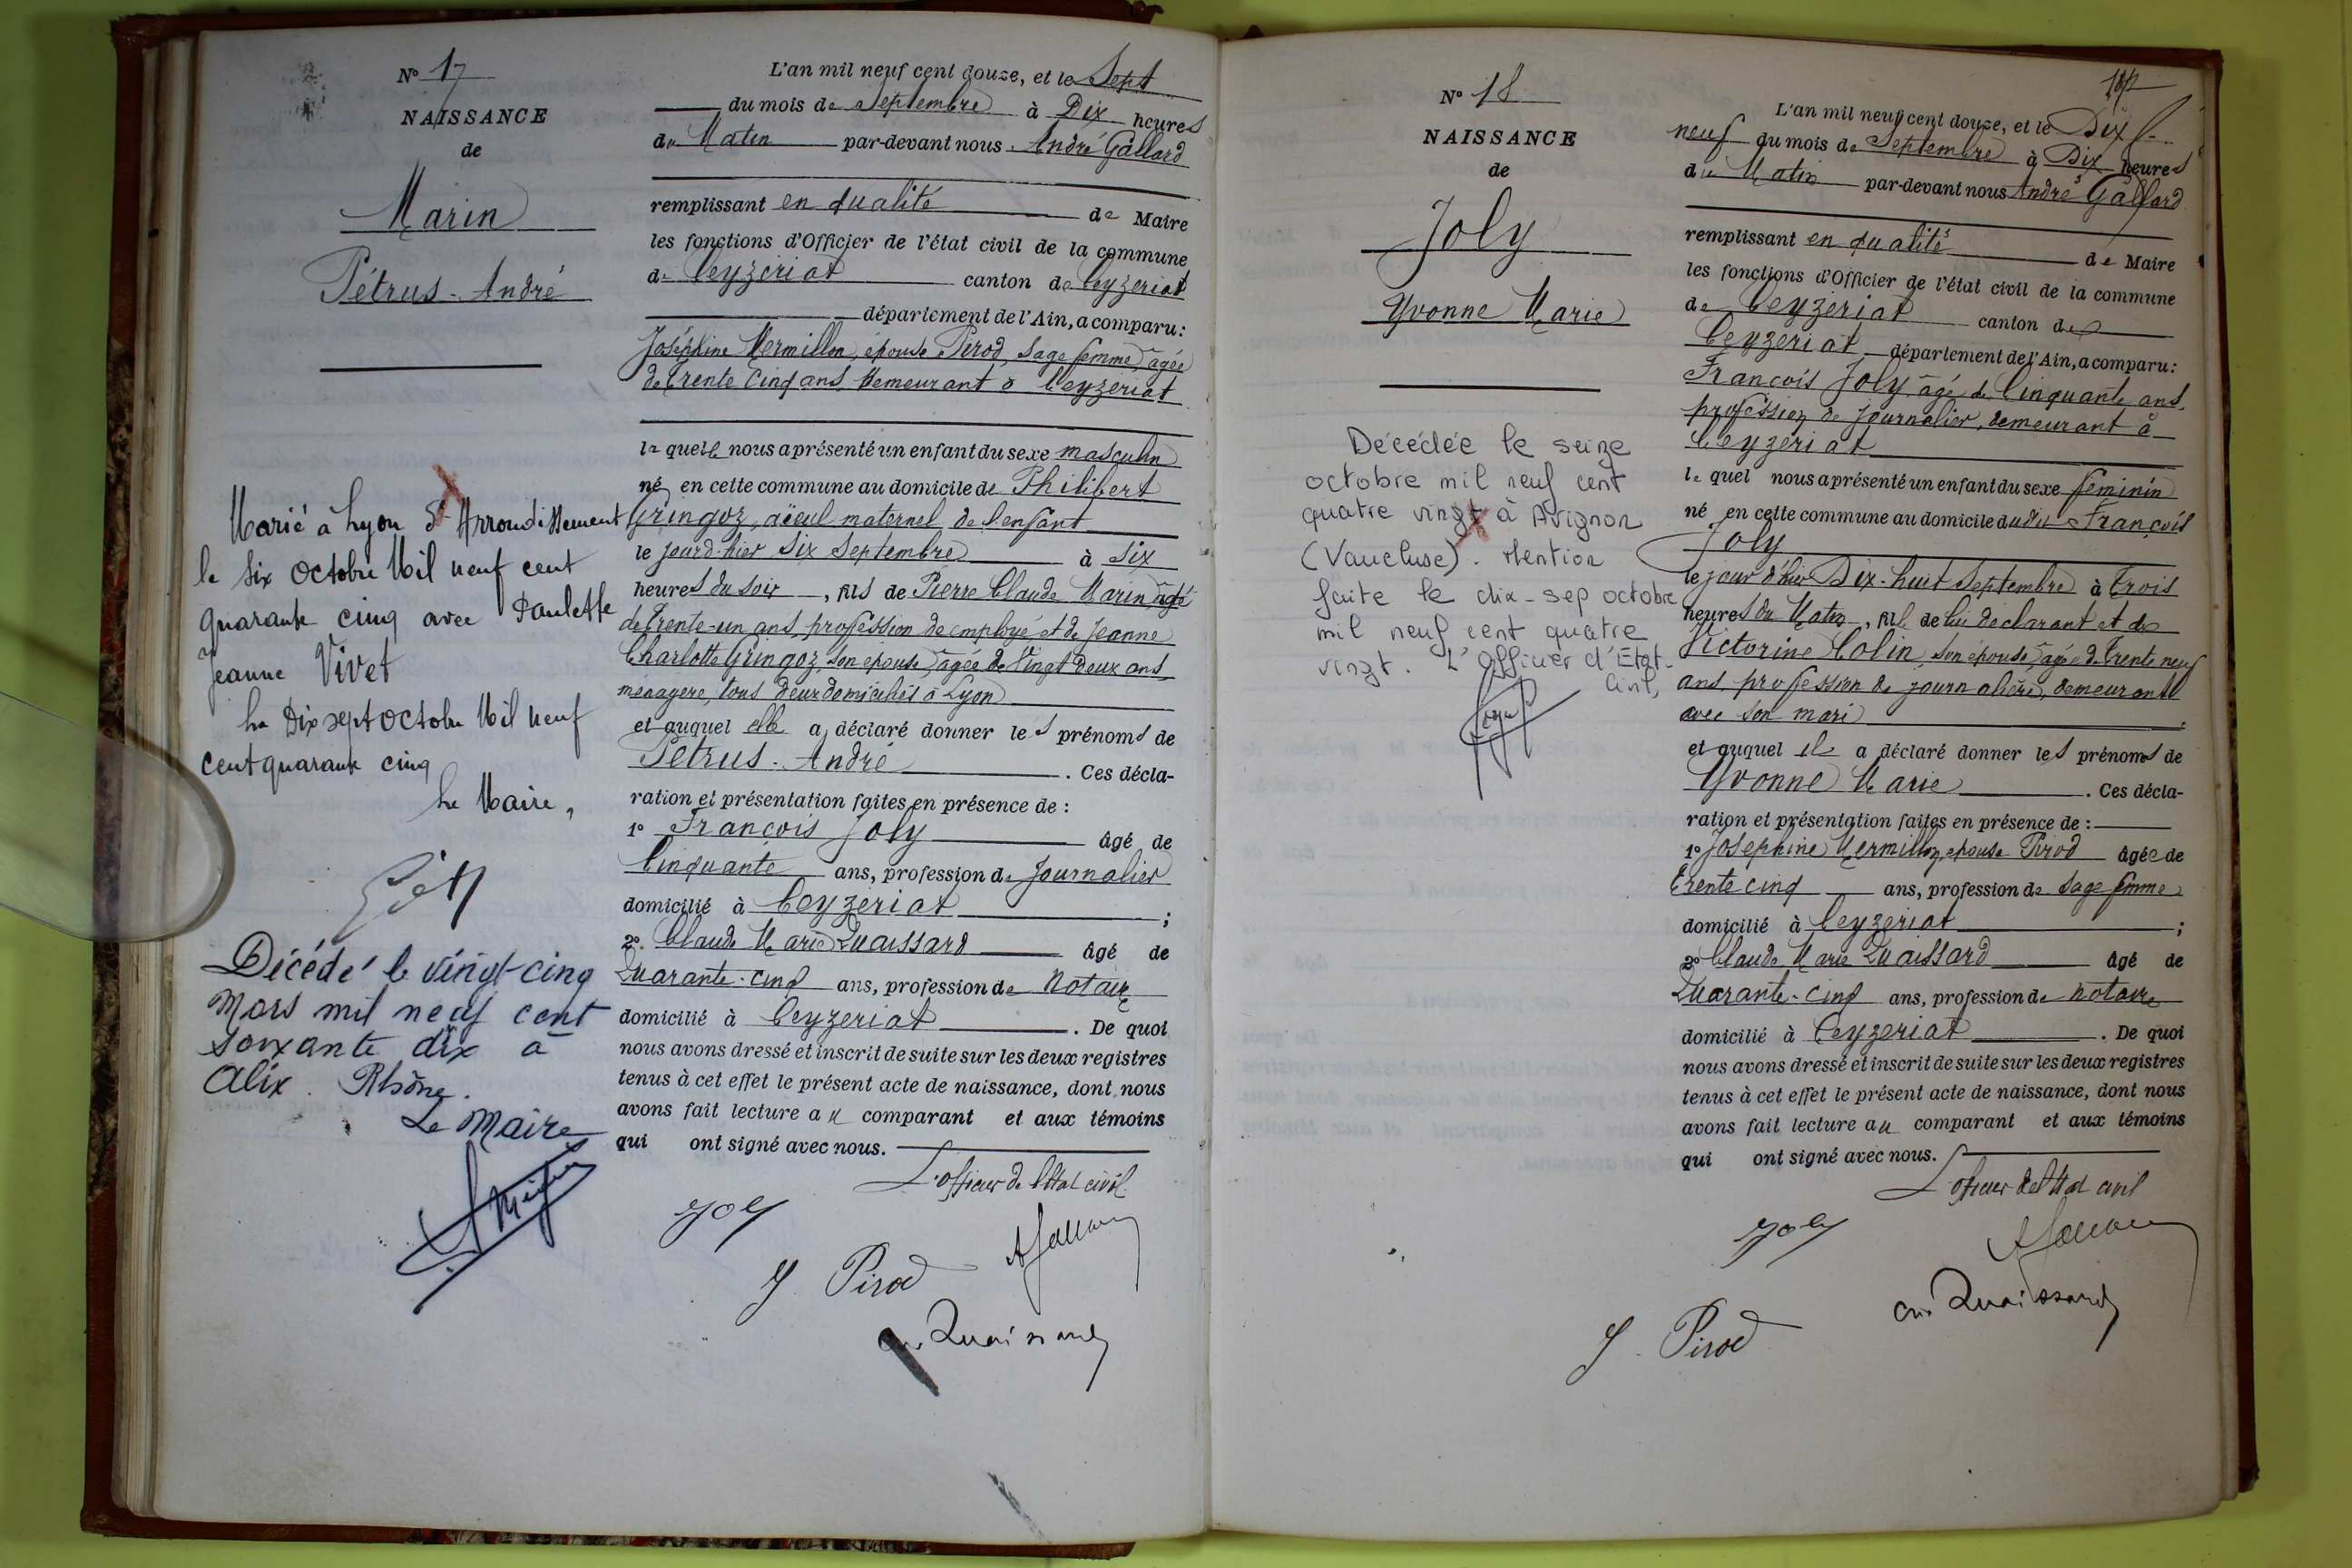 N° 17
NAISSANCE
de
Marin
Pétrus-André
Marié à Lyon 5e Arrondissement
le six octobre Mil neuf cent
quarante cinq avec Paulette
Jeanne Vivet
Le Dix sept octobre Mil neuf
cent quarante cinq
Le Maire,
Décédé le vingt-cinq
mars mil neuf cent
soixante dix à
Alix. Rhône.
Le Maire
L'an mil neuf cent douze, et le Sept
du mois de Septembre à Dix heures
du Matin par-devant nous André Gallard
remplissant en qualité de Maire
les fonctions d'Officier de l'état civil de la commune
de Ceyzériat canton de Ceyzeriat
département de l'Ain, a comparu:
Joséphine Mermillon, épouse Pirod, Sage femme, âgée
de trente cinq ans, demeurant à Ceyzeriat
laquelle nous a présenté un enfant du sexe masculin
né en cette commune au domicile de Philibert
Gringoz, aïeul maternel de l'enfant
le jourd-hier six Septembre à six
heures du soir, fils de Pierre Claude Marin âgé
de trente-un ans, profession de employé et de Jeanne
Charlotte Gringoz, son épouse, âgée de vingt deux ans,
ménagère, tous deux domiciliés à Lyon
et auquel elle a déclaré donner les prénoms de
Pétrus-André. Ces décla-
ration et présentation faites en présence de :
1° François Joly âgé de
Cinquante ans, profession de Journalier
domicilié à Ceyzeriat ;
2° Claude Marie Quaissard âgé de
Quarante-cinq ans, profession de Notaire
domicilié à Ceyzeriat. De quoi
nous avons dressé et inscrit de suite sur les deux registres
tenus à cet effet le présent acte de naissance, dont nous
avons fait lecture au comparant et aux témoins
qui ont signé avec nous.
L'officier de l'état civil
Joly
A Gallard
J. Pirod
Quaissard
N° 18
NAISSANCE
de
Joly
Yvonne Marie
Décédée le seize
octobre mil neuf cent
quatre vingt à Avignon
(Vaucluse). Mention
faite le dix-sep octobre
mil neuf cent quatre
vingt. L'Officier d'Etat-
Civil,
L'an mil neuf cent douze, et le Dix-
neuf du mois de Septembre à Dix heures
du Matin par-devant nous André Gallard
remplissant en qualité de Maire
les fonctions d'Officier de l'état civil de la commune
de Ceyzeriat canton de
Ceyzeriat département de l'Ain, a comparu:
François Joly, âgé de Cinquante ans,
profession de journalier, demeurant à
Ceyzériat
lequel nous a présenté un enfant du sexe féminin
né en cette commune au domicile dudit François
Joly
le jour d'hier Dix-huit Septembre à trois
heures du Matin, fille de lui déclarant et de
Victorine Colin, son épouse, âgée de trente neuf
ans, profession de journalière, demeurant
avec son mari
et auquel il a déclaré donner les prénoms de
Yvonne Marie. Ces décla-
ration et présentation faites en présence de :
1° Josephine Mermillon, épouse Pirod âgée de
trente cinq ans, profession de Sage femme
domicilié à Ceyzeriat ;
2° Claude Marie Quaissard âgé de
Quarante-cinq ans, profession de notaire
domicilié à Ceyzeriat. De quoi
nous avons dressé et inscrit de suite sur les deux registres
tenus à cet effet le présent acte de naissance, dont nous
avons fait lecture au comparant et aux témoins
qui ont signé avec nous.
L'officier de l'état civil
Joly
A Gallard
Quaissard
J. Pirod